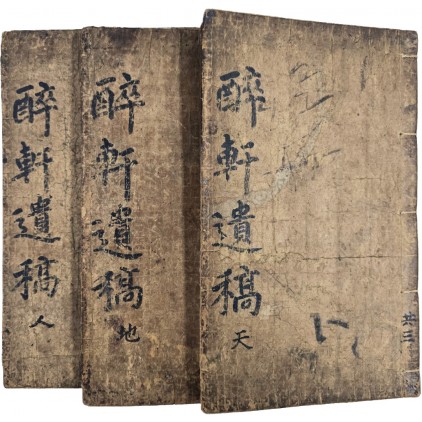 醉軒遺稿 天
共三
醉軒遺稿 地
醉軒遺稿 人